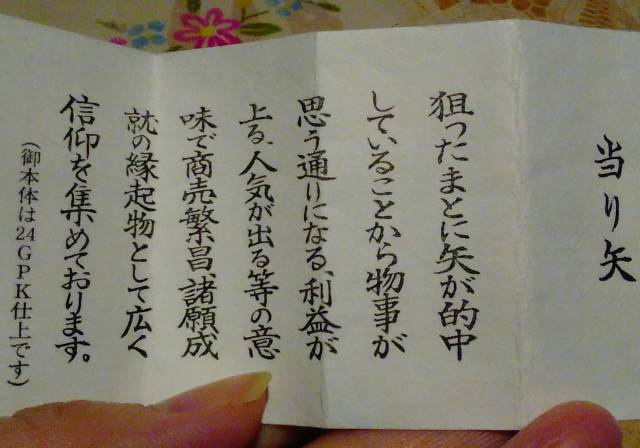 当り矢
狙ったまとに矢が的中
していることから物事が
思う通りになる、利益が
上る、人気が出る等の意
味で商売繁昌、諸願成
就の縁起物として広く
信仰を集めております。
(御本体は24GPK仕上です)